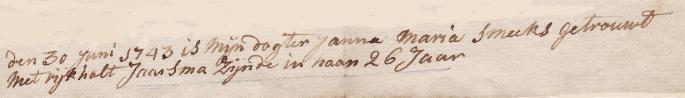 den 30 Juni 1743 is Mijn dogter Janna Maria Smeeks getrouwt
Met rijkholt Jaarsma Zijnde in haar 26 Jaar